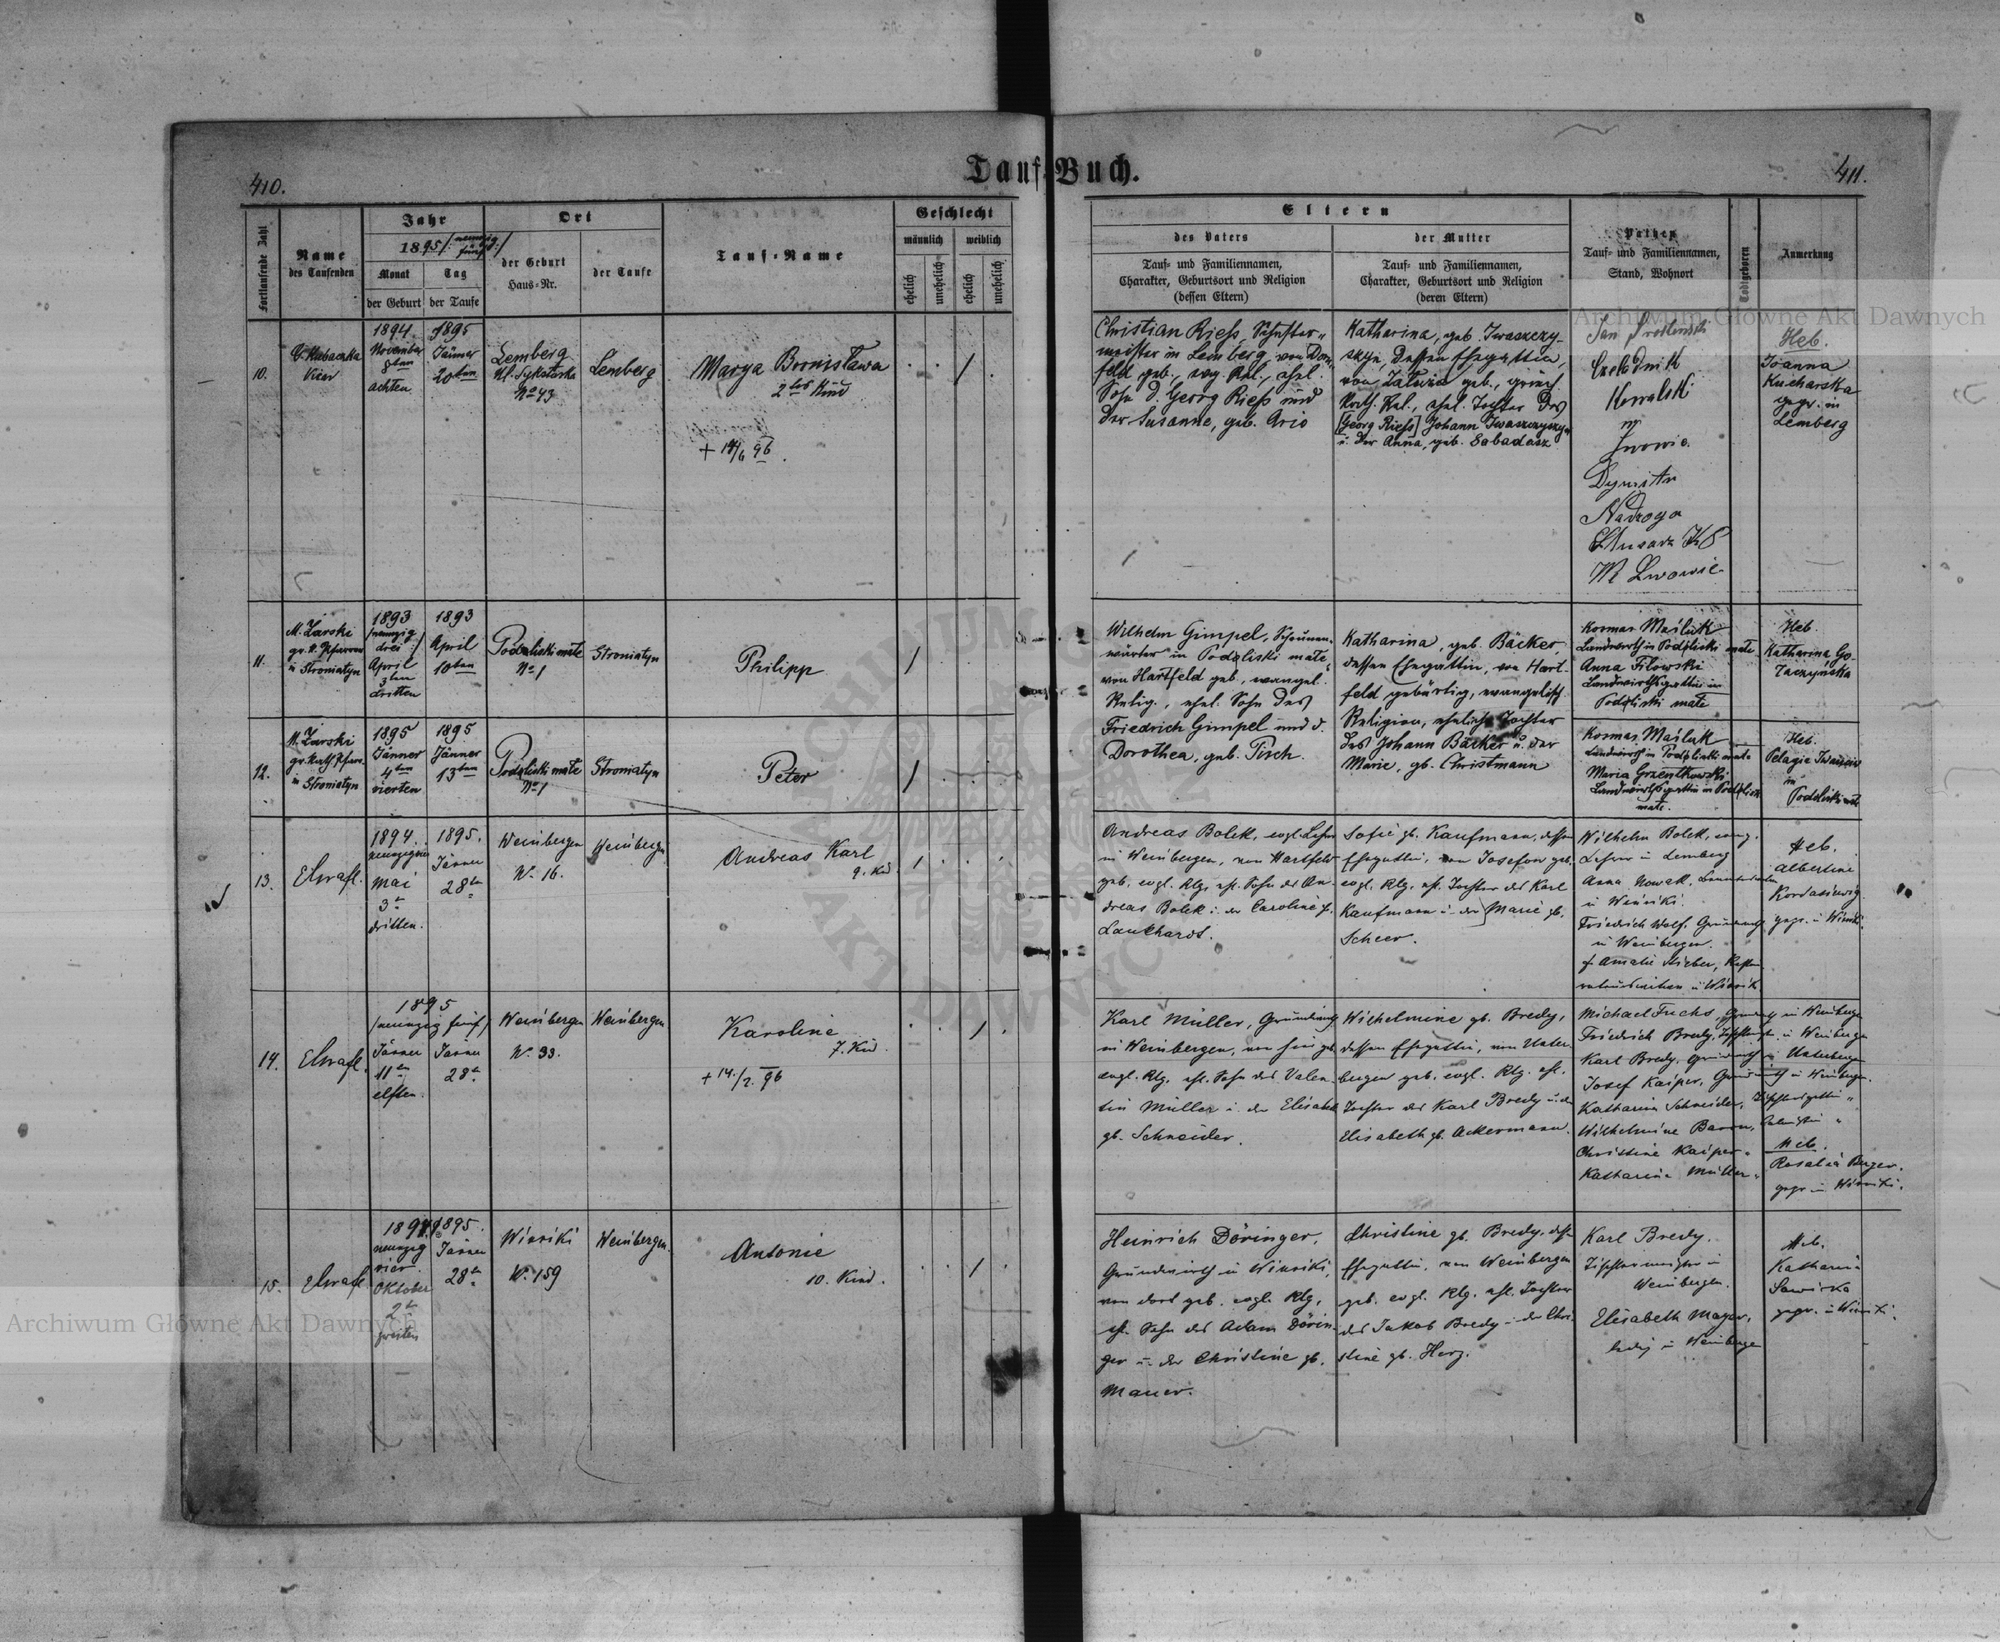 410.
Tauf-Buch.
411.
Fortlaufende Zahl
Name
des Taufenden
Jahr
1895 /: neunzig
fünf :/
Monat
Tag
der Geburt
der Taufe
Ort
der Geburt
Haus-Nr.
der Taufe
Tauf-Name
Geschlecht
männlich
weiblich
ehelich
unehelich
ehelich
unehelich
Eltern
des Vaters
Tauf- und Familiennamen,
Charakter, Geburtsort und Religion
(dessen Eltern)
der Mutter
Tauf- und Familiennamen,
Charakter, Geburtsort und Religion
(deren Eltern)
Pathen
Tauf- und Familiennamen,
Stand, Wohnort
Todtgeboren
Anmerkung
10.
Vicar
1894.
November
8ten
achten
1895
Jänner
20ten
Lemberg
Ul. Sykstuska
No 43
Lemberg
Marya Bronisława
2tes Kind
+ 14/6 96.
/
Christian Riess, Schuster-
meister in Lemberg, von Dorn-
feld geb., evg. Rel., ehel.
Sohn d. Georg Riess und
der Susanne, geb.
Katharina, geb. Iwaszczy-
szyn, dessen Ehegattin,
von geb., griech.
Kath. Rel., ehel. Tochter des
[Georg Riess] Johann Iwaszczyszyn
u. der Anna, geb. Sabadasz
Jan
Czeladnik
Kowalski
w
Lwowie.
Dymitr
Nadzoga
W Lwowie
Heb.
Joanna
Kucharska
gegr. in
Lemberg
11.
M. Żarski
gr. k. Pfarrer
in Stroniatyn
1893
/neunzig
drei :/
April
3ten
dritten
1893
April
10ten
Podzliski małe
No 1
Stroniatyn
Philipp
/
Wilhelm Gimpel, Scheunen-
wärter in Podzliski małe,
von Hartfeld geb., evangel.
Relig., ehel. Sohn des
Friedrich Gimpel und d.
Dorothea, geb. Tisch.
Katharina, geb. Bäcker,
dessen Ehegattin, von Hart-
feld gebürtig, evangelisch.
Religion, eheliche Tochter
des Johann Bäcker u. der
Marie, gb. Christmann
Kosmas Maśluk
Landwirth in Podzliski małe
Anna Filowski
Landwirthsgattin in
Podzliski małe
Heb.
Katharina Go-
12.
M. Żarski
gr. kath. Pfarr.
in Stroniatyn
1895
Jänner
4ten
vierten
1895
Jänner
13ten
Podzliski małe
No 1
Stroniatyn
Peter
/
Kosmas Maśluk
Landwirth in Podzliski małe
Maria
Landwirthsgattin in Podzliski
małe.
Heb.
Pelagia
in
Podzliski małe
13.
1894.
Mai
3t
dritten.
1895.
Jänner
28t
Weinbergen
No 16.
Weinbergen
Andreas Karl
9. Kid.
/
Andreas Bolek, evgl. Lehrer
in Weinbergen, von Hartfeld
geb. evgl. Rlg. ehl. Sohn des An-
dreas Bolek u. der Caroline gb.
Lankhardt.
Sofie gb. Kaufmann, dessen
Ehegattin, von Josefow geb.
evgl. Rlg. ehl. Tochter des Karl
Kaufmann u. der Marie gb.
Scheer.
Wilhelm Bolek, evang.
Lehrer in Lemberg
Anna Nowak,
in Winniki.
Friedrich Wolf, Grundwirth
in Weinbergen.
Heb.
Albertine
gegr. in Winniki.
14.
1895
/neunzig fünf/
Jänner
11ten
elften.
Jänner
28t
Weinbergen
No 33.
Weinbergen
Karoline
7. Kid.
+ 14./2. 96
/
Karl Müller, Grundwirth
in Weinbergen, von hier geb.
evgl. Rlg. ehl. Sohn des Valen-
tin Müller u. der Elisabeth
gb. Schneider.
Wilhelmine gb. Bredy,
dessen Ehegattin, von Unter-
bergen geb. evgl. Rlg. ehl.
Tochter des Karl Bredy u. der
Elisabeth gb. Ackermann.
Michael Fuchs, Grundwirth in Weinbergen
Friedrich Bredy, in Weinbergen
Karl Bredy, Grundwirth in Unterbergen
Josef Kaiper, Grundwirth in Weinbergen.
Katharina Schneider,
Wilhelmine Baron,
Christine Kaiper "
Katharina Müller "
Heb.
Rosalia Berger
gegr. in Winniki.
15.
1894
neunzig
vier
Oktober
2t
zweiten
1895.
Jänner
28t
Winniki
No 159
Weinbergen.
Antonie
10. Kind.
/
Heinrich Döringer,
Grundwirth in Winniki,
von dort geb. evgl. Rlg,
ehl. Sohn des Adam Dörin-
ger u. der Christine gb.
Mauer.
Christine gb. Bredy, dessen
Ehegattin, von Weinbergen
geb. evgl. Rlg. ehl. Tochter
des Jakob Bredy u. der Chri-
stine gb. Herz.
Karl Bredy,
Tischlermeister in
Weinbergen.
Elisabeth Mayer,
ledig in Weinbergen
Heb.
Katharina
gegr. in Winniki.
Archiwum Główne Akt Dawnych
Archiwum Główne Akt Dawnych